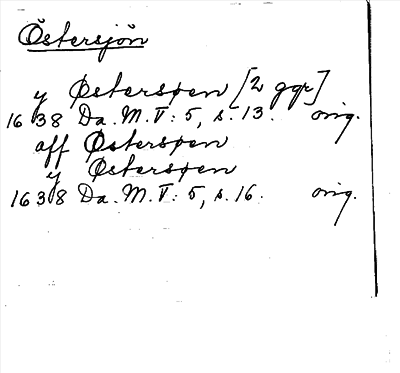 Östersjön
y Østersøen [2 ggr]
1638 Da. M. V: 5, s. 13. orig.
aff Østersøen
y Østersøen
1638 Da. M. V: 5, s. 16. orig.